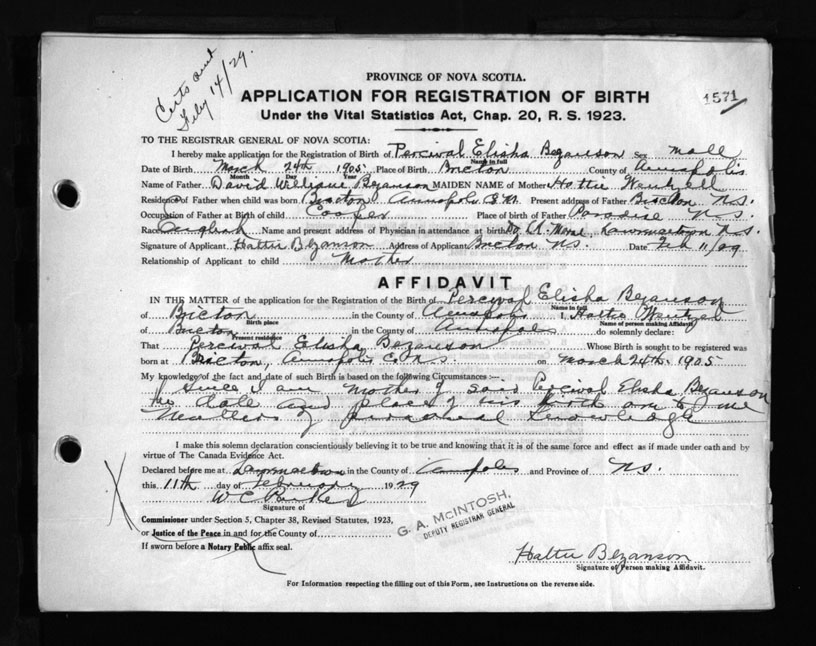 Certs sent
Feby 14/29.
PROVINCE OF NOVA SCOTIA.
1571
APPLICATION FOR REGISTRATION OF BIRTH
Under the Vital Statistics Act, Chap. 20, R. S. 1923.
TO THE REGISTRAR GENERAL OF NOVA SCOTIA:
I hereby make application for the Registration of Birth of Percival Elisha Bezanson Sex Male
Name in full
Date of Birth March 24th 1905 Place of Birth Bricton County of Annapolis
Month Day Year
Name of Father David William Bezanson MAIDEN NAME of Mother Hattie Wentzell
Residence of Father when child was born Bricton Annapolis Present address of Father Bricton N.S.
Occupation of Father at Birth of child Cooper Place of birth of Father Paradise N.S.
Race English Name and present address of Physician in attendance at birth Lawrencetown N.S.
Signature of Applicant Hattie Bezanson Address of Applicant Bricton N.S. Date Feb 11/29
Relationship of Applicant to child Mother
AFFIDAVIT
IN THE MATTER of the application for the Registration of the Birth of Percival Elisha Bezanson
Name in full
of Bricton in the County of Annapolis I, Hattie Wentzel
Birth place Name of person making Affidavit
of Bricton in the County of Annapolis do solemnly declare:
Present residence
That Percival Elisha Bezanson Whose Birth is sought to be registered was
born at Bricton, Annapolis Co N.S. on March 24th. 1905
My knowledge of the fact and date of such Birth is based on the following Circumstances :—
Since I am Mother of said Percival Elisha Bezanson
the date and place of his birth are to me
matters of personal knowledge
I make this solemn declaration conscientiously believing it to be true and knowing that it is of the same force and effect as if made under oath and by
virtue of The Canada Evidence Act.
Declared before me at Lawrencetown in the County of Annapolis and Province of N.S.
this 11th day of February 1929
W C Parker
Signature of
Commissioner under Section 5, Chapter 38, Revised Statutes, 1923,
G. A. McINTOSH,
DEPUTY REGISTRAR GENERAL
or Justice of the Peace in and for the County of
If sworn before a Notary Public affix seal.
Hattie Bezanson
Signature of Person making Affidavit.
For Information respecting the filling out of this Form, see Instructions on the reverse side.